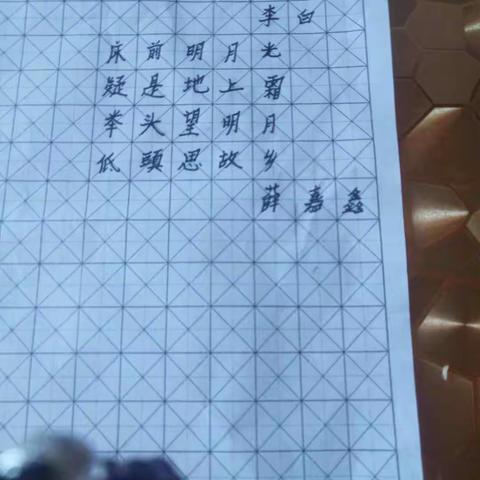 李白
床前明月光
疑是地上霜
拳头望明月
低頭思故乡
薛嘉鑫